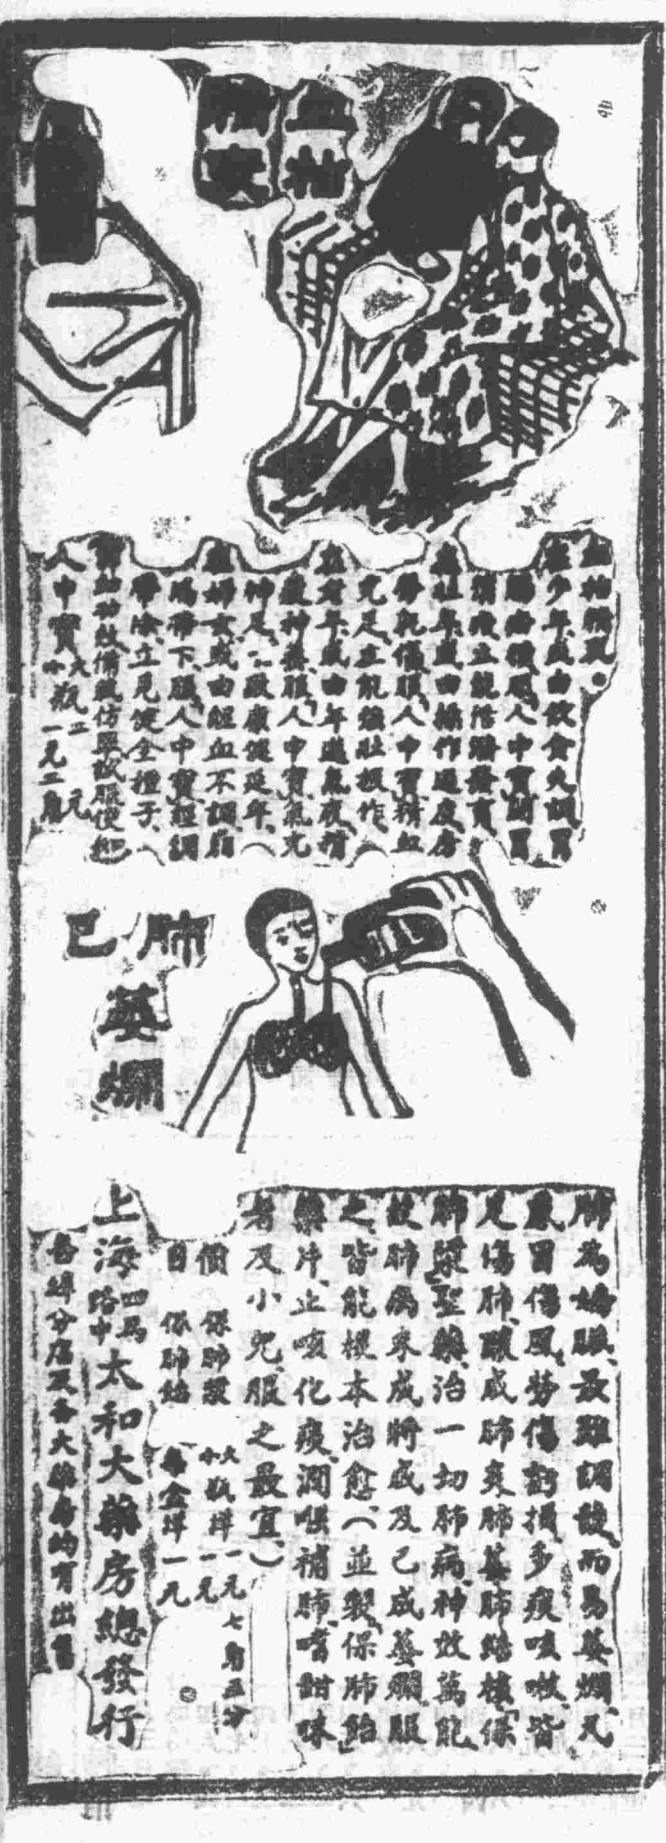 血枯精衰
血枯精衰
在少年或由飲食失調胃
服人中寶
壯年或由操作過度房
勞耗傷服人中寶精血
充足立能強壯
老年或由年邁氣衰精
服人中寶氣充
神足 康健延年
婦女或由經血不調
帶下服人中寶經調
帶除立見健全種子
功效備載仿單試服便知
人中寶大瓶二元
小瓶一元二角
肺已萎爛
肺為嬌臟最難調護而易萎爛又
感冒傷風勞傷虧損多痰咳嗽皆
足傷肺釀成肺炎肺萎肺結核「保
肺漿」聖藥治一切肺病神效萬能
故肺病未成將成及已成萎爛服
之皆能根本治愈（並製「保肺飴」
藥片止咳化痰潤喉補肺嗜甜味
者及小兒服之最宜）
價目
保肺漿 大瓶洋一元七角五分
小瓶洋一元
保肺飴 每盒洋一元
上海四馬路中太和大藥房總發行
各埠分店及各大藥房均有出售